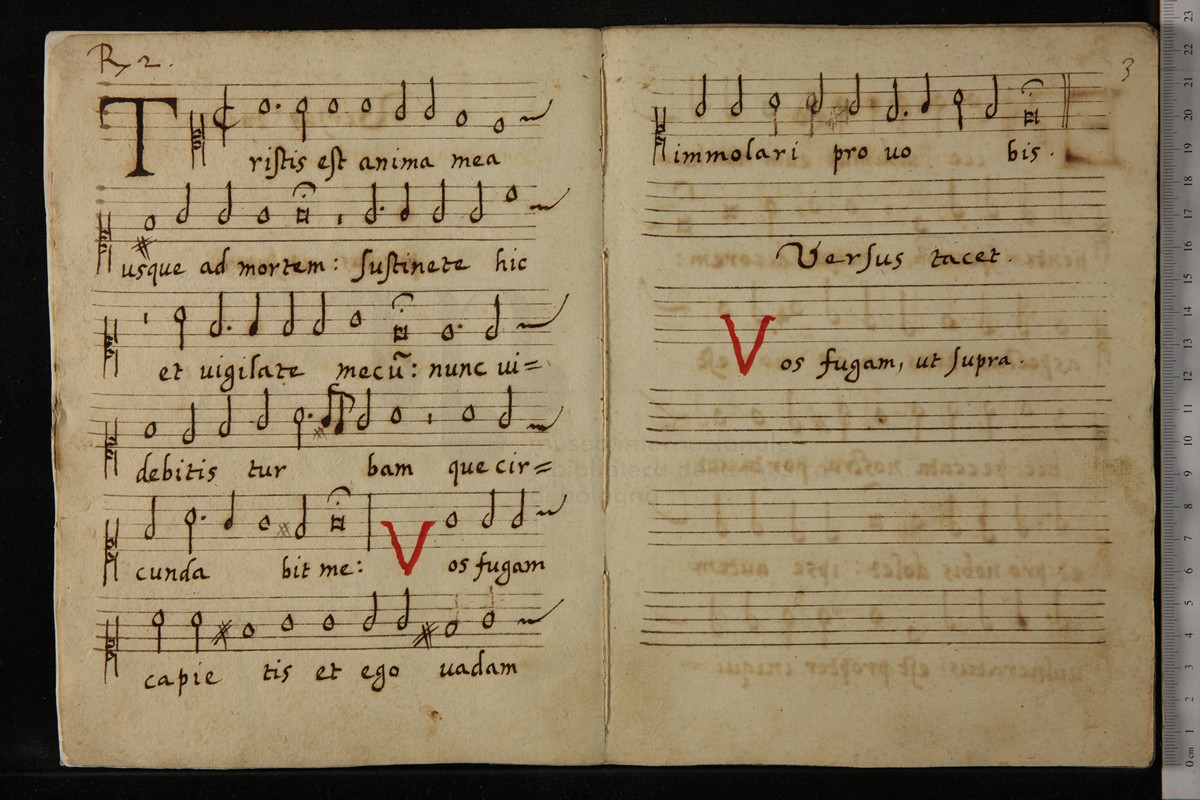 R, 2.
Tristis est anima mea
usque ad mortem: sustinete hic
et uigilate mecũ: nunc ui=
debitis tur bam que cir=
cunda bit me: Vos fugam
capie tis et ego uadam
3
immolari pro uo bis.
Versus tacet.
Vos fugam, ut supra.